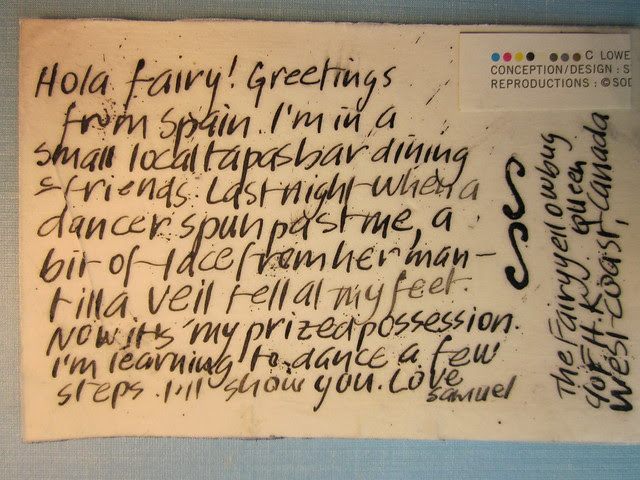 Hola Fairy! Greetings
from Spain. I'm in a
small local tapas bar dining
c friends. Last night when a
dancer spun past me, a
bit of lace from her man-
tilla veil fell at my feet.
Now it's my prized possession.
I'm learning to dance a few
steps. I'll show you. Love
Samuel
C LOWE
CONCEPTION/DESIGN : S
REPRODUCTIONS : © SOD
The Fairyyellowbug
Queen
West Coast, Canada